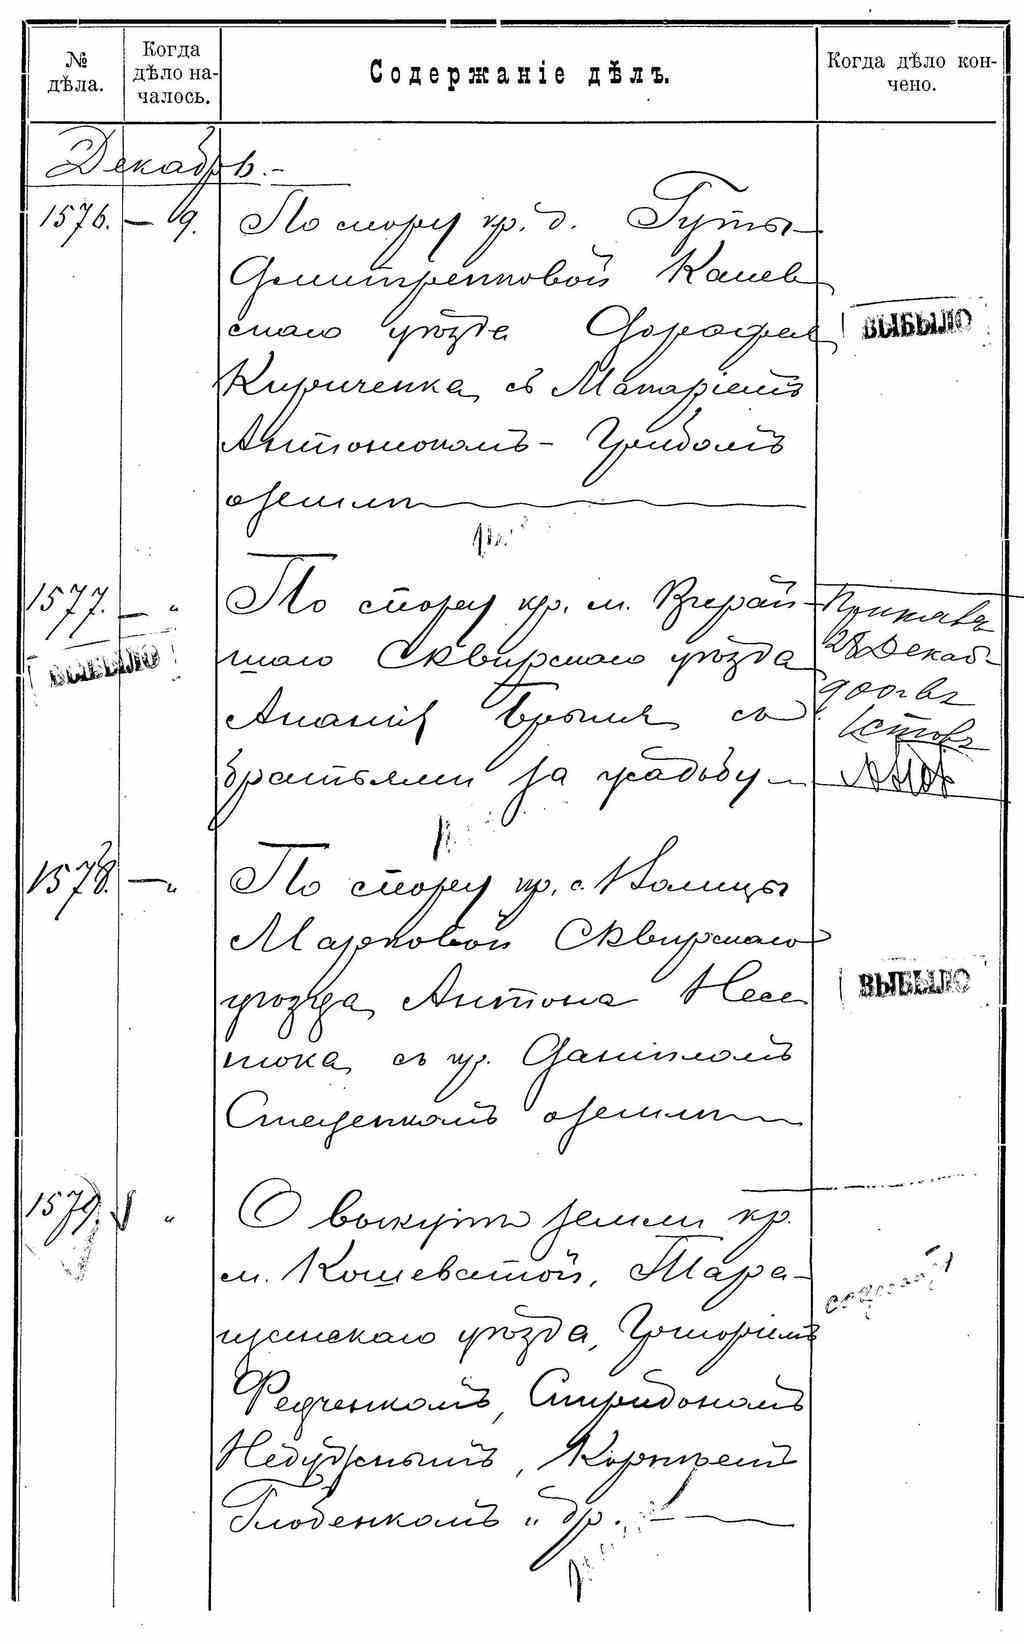 № дѣла.
Когда дѣло началось.
Содержаніе дѣлъ.
Когда дѣло кончено.
Декабрь.-
1576. — 9. По спору кр. д. Гуты
Дмитренковой Канев
скаго уѣзда Дорофея
Кириченка съ Макаріемъ
Антонюкомъ - Грибомъ
о землѣ
ВЫБЫЛО
1577. — " По спору кр. м.
шаго Сквирскаго уѣзда
Ананія Брыля съ
братьями за усадьбу
ВЫБЫЛО
28 Декаб
900 г въ
1578. — " По спору кр. с. Волицы
Марковой Сквирскаго
уѣзда Антона
съ кр. Даніиломъ
Стеценкомъ о землѣ
ВЫБЫЛО
1579. " О выкупѣ земли кр.
м. Кошеватой, Тара-
щанскаго уѣзда, Григоріемъ
Федченкомъ, Спиридономъ
Недужнымъ, Корнѣемъ
Глобенкомъ и др.